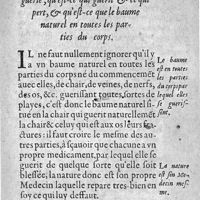 guerie, qu'est-ce qui guerit & ce qui
pert, & qu'est-ce que le baume
naturel en toutes les par-
ties du corps.
IL ne faut nullement ignorer qu'il y
a vn baume naturel en toutes les
parties du corps né du commencemẽt
auec elles, de chair, de veines, de nerfs,
de os, &c. guerissant toutes sortes de
playes, c'est donc le baume naturel e-
stant en la chair qui guerit naturellemẽt
la chair & celuy qui est aux os leurs
: il faut encore le mesme des au-
tres parties, chacune ayant a soy
vn propre medicament, par lequel elle se
guerit de quelque sorte qu'elle soit
blessée; la nature donc est son propre
Medecin laquelle repare tres-bien en
soy ce qui luy deffaut.
Le baume
est en toutes
les parties
du corps par
lequel elles
se gueris-
sent.
La nature
est son Me-
decin mes-
me.